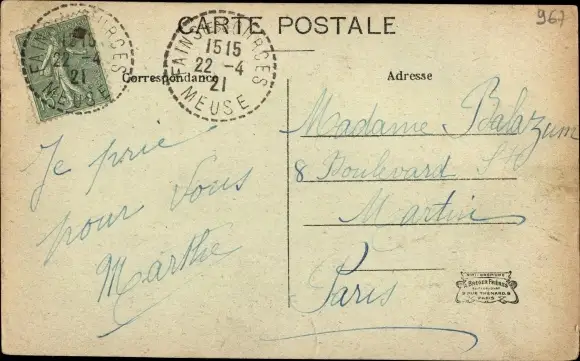 CARTE POSTALE
967
FAINS-LES-SOURCES
1515
22 -4
21
MEUSE
FAINS-LES-SOURCES
1515
22 -4
21
MEUSE
Correspondance
Adresse
Je prie
pour vous
Marthe
Madame Balazum
8 Boulevard St
Martin
Paris
PARIS